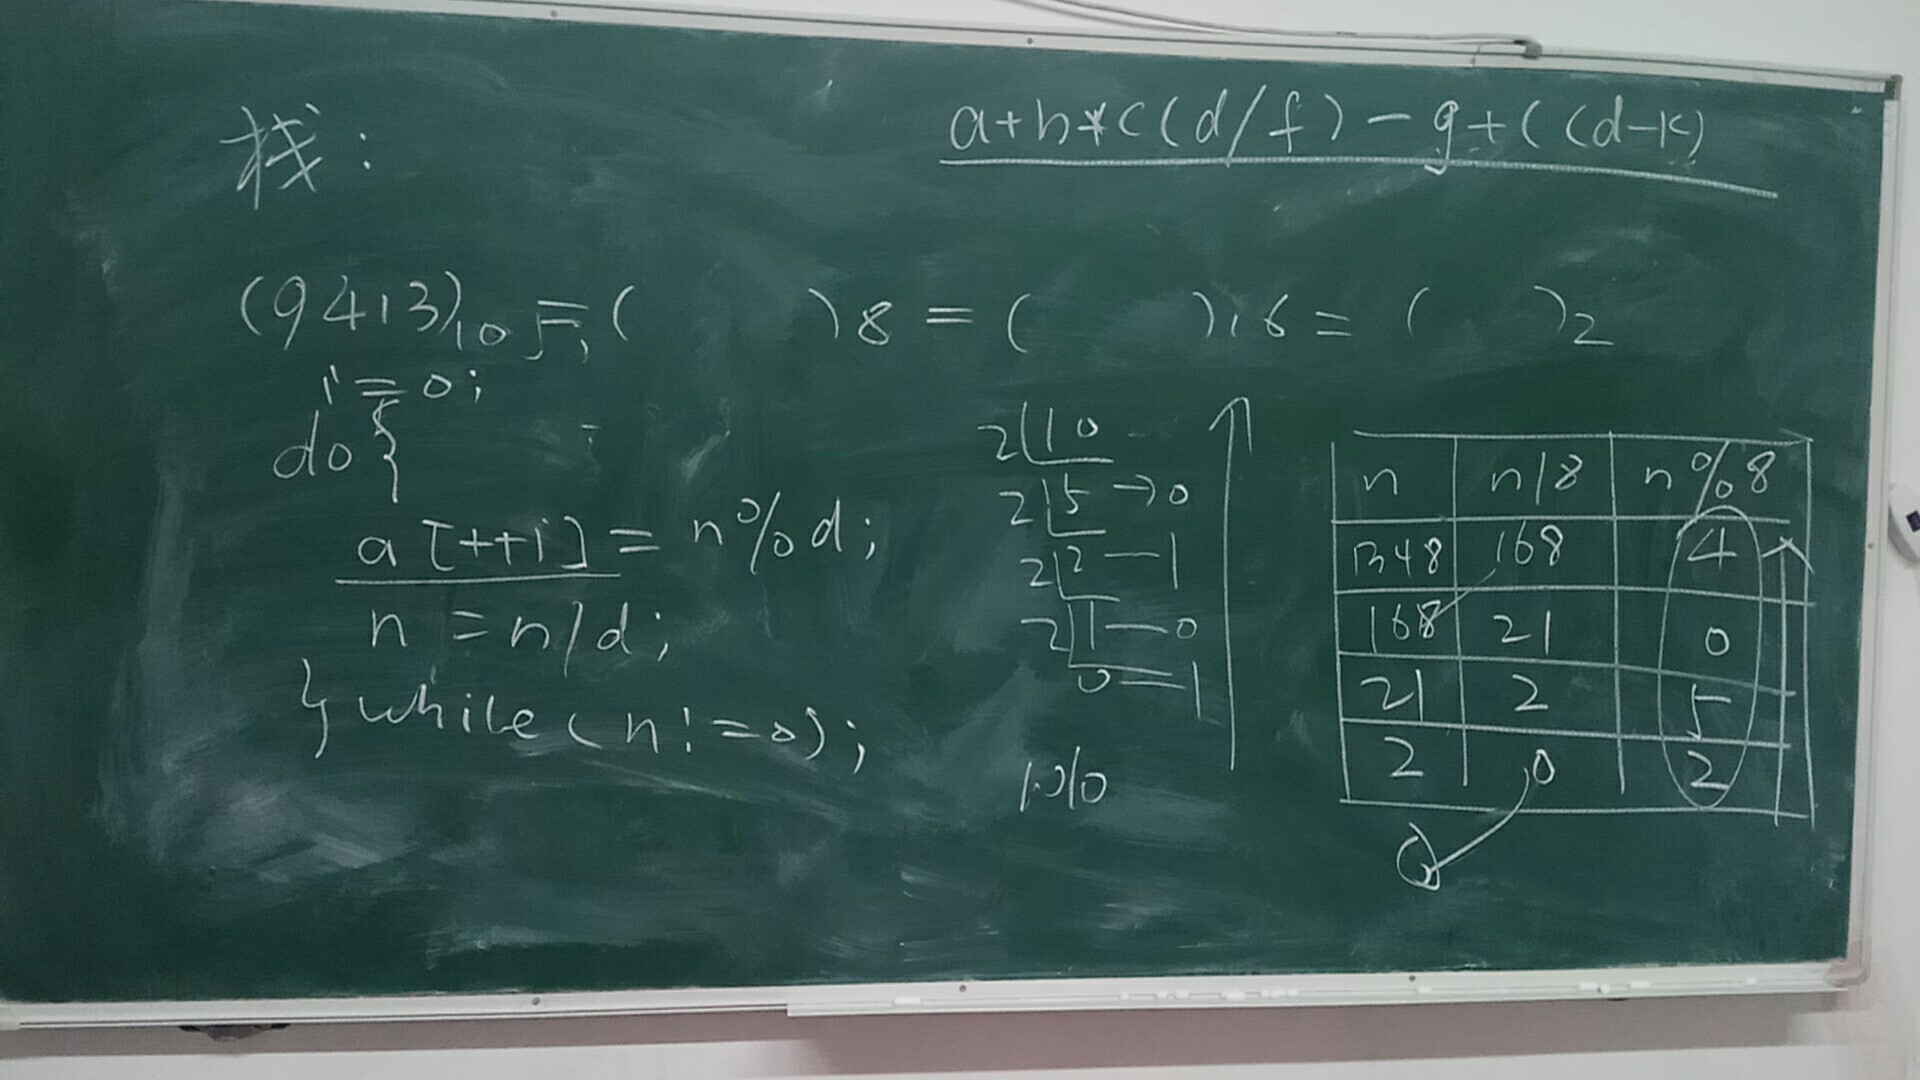 栈:
a+b*c(d/f)-g+((d-k)
(9413)10 = ( )8 = ( )16 = ( )2
i=0;
do{
a[++i]=n%d;
n=n/d;
}while(n!=0);
2 10
2 5 →0
2 2 —1
2 1 —0
0 —1
1010
n n/8 n%8
1348 168 4
168 21 0
21 2 5
2 0 2